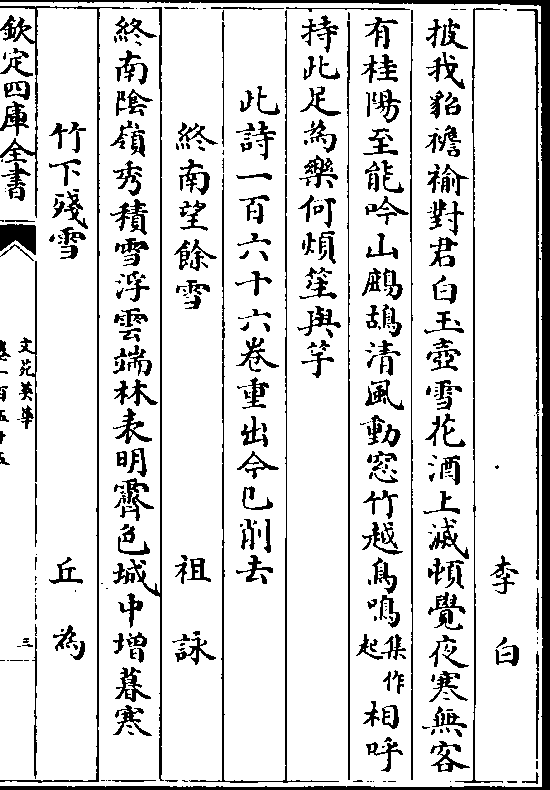 李白
披我貂襜褕對君白玉壺雪花酒上滅頓覺夜寒無客
有桂陽至能吟山鷓鴣清風動窓竹越鳥鳴集作起相呼
持此足為樂何煩笙與竽
此詩一百六十六卷重出今已削去
終南望餘雪 祖詠
終南陰嶺秀積雪浮雲端林表明霽色城中增暮寒
竹下殘雪 丘為
欽定四庫全書
文苑英華
卷一百五十五
三